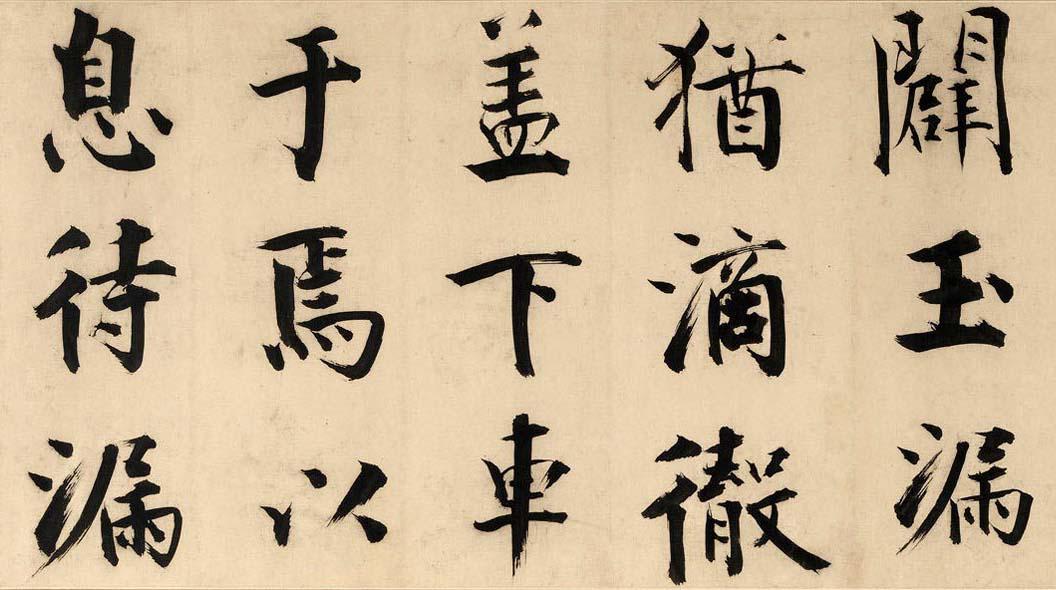 闢玉漏
猶滴徹
盖下車
于焉以
息待漏